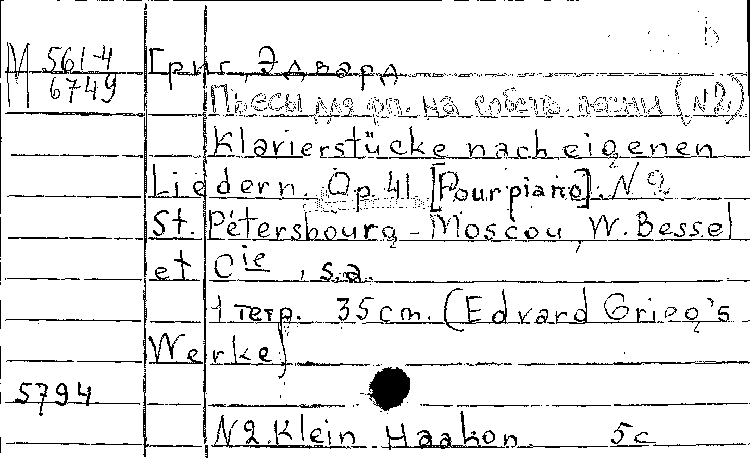 b
М 561-4 Григ, Эдвард
6749
Пьесы для фп. на собств. песни (N2)
Klavierstücke nach eigenen
Liedern. Op. 41. [Pour piano]. N 2
St. Pétersbourg - Moscou, W. Bessel
et Cie, s.a.
1 тетр. 35 cm. (Edvard Grieg's
Werke)
5794
N2. Klein Haakon. 5c